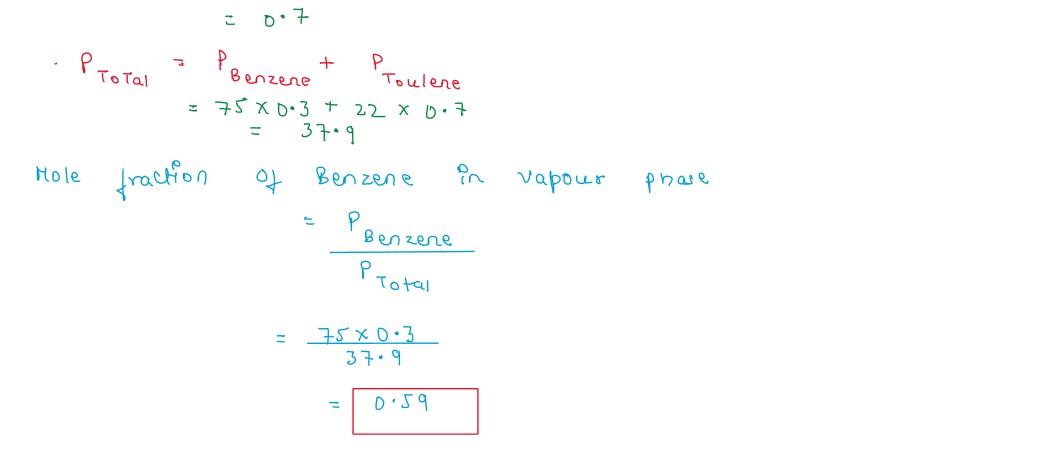 = 0.7
. P Total = P Benzene + P Toulene
= 75 x 0.3 + 22 x 0.7
= 37.9
Mole fraction Of Benzene in vapour phase
= P Benzene
P Total
= 75 x 0.3
37.9
= 0.59